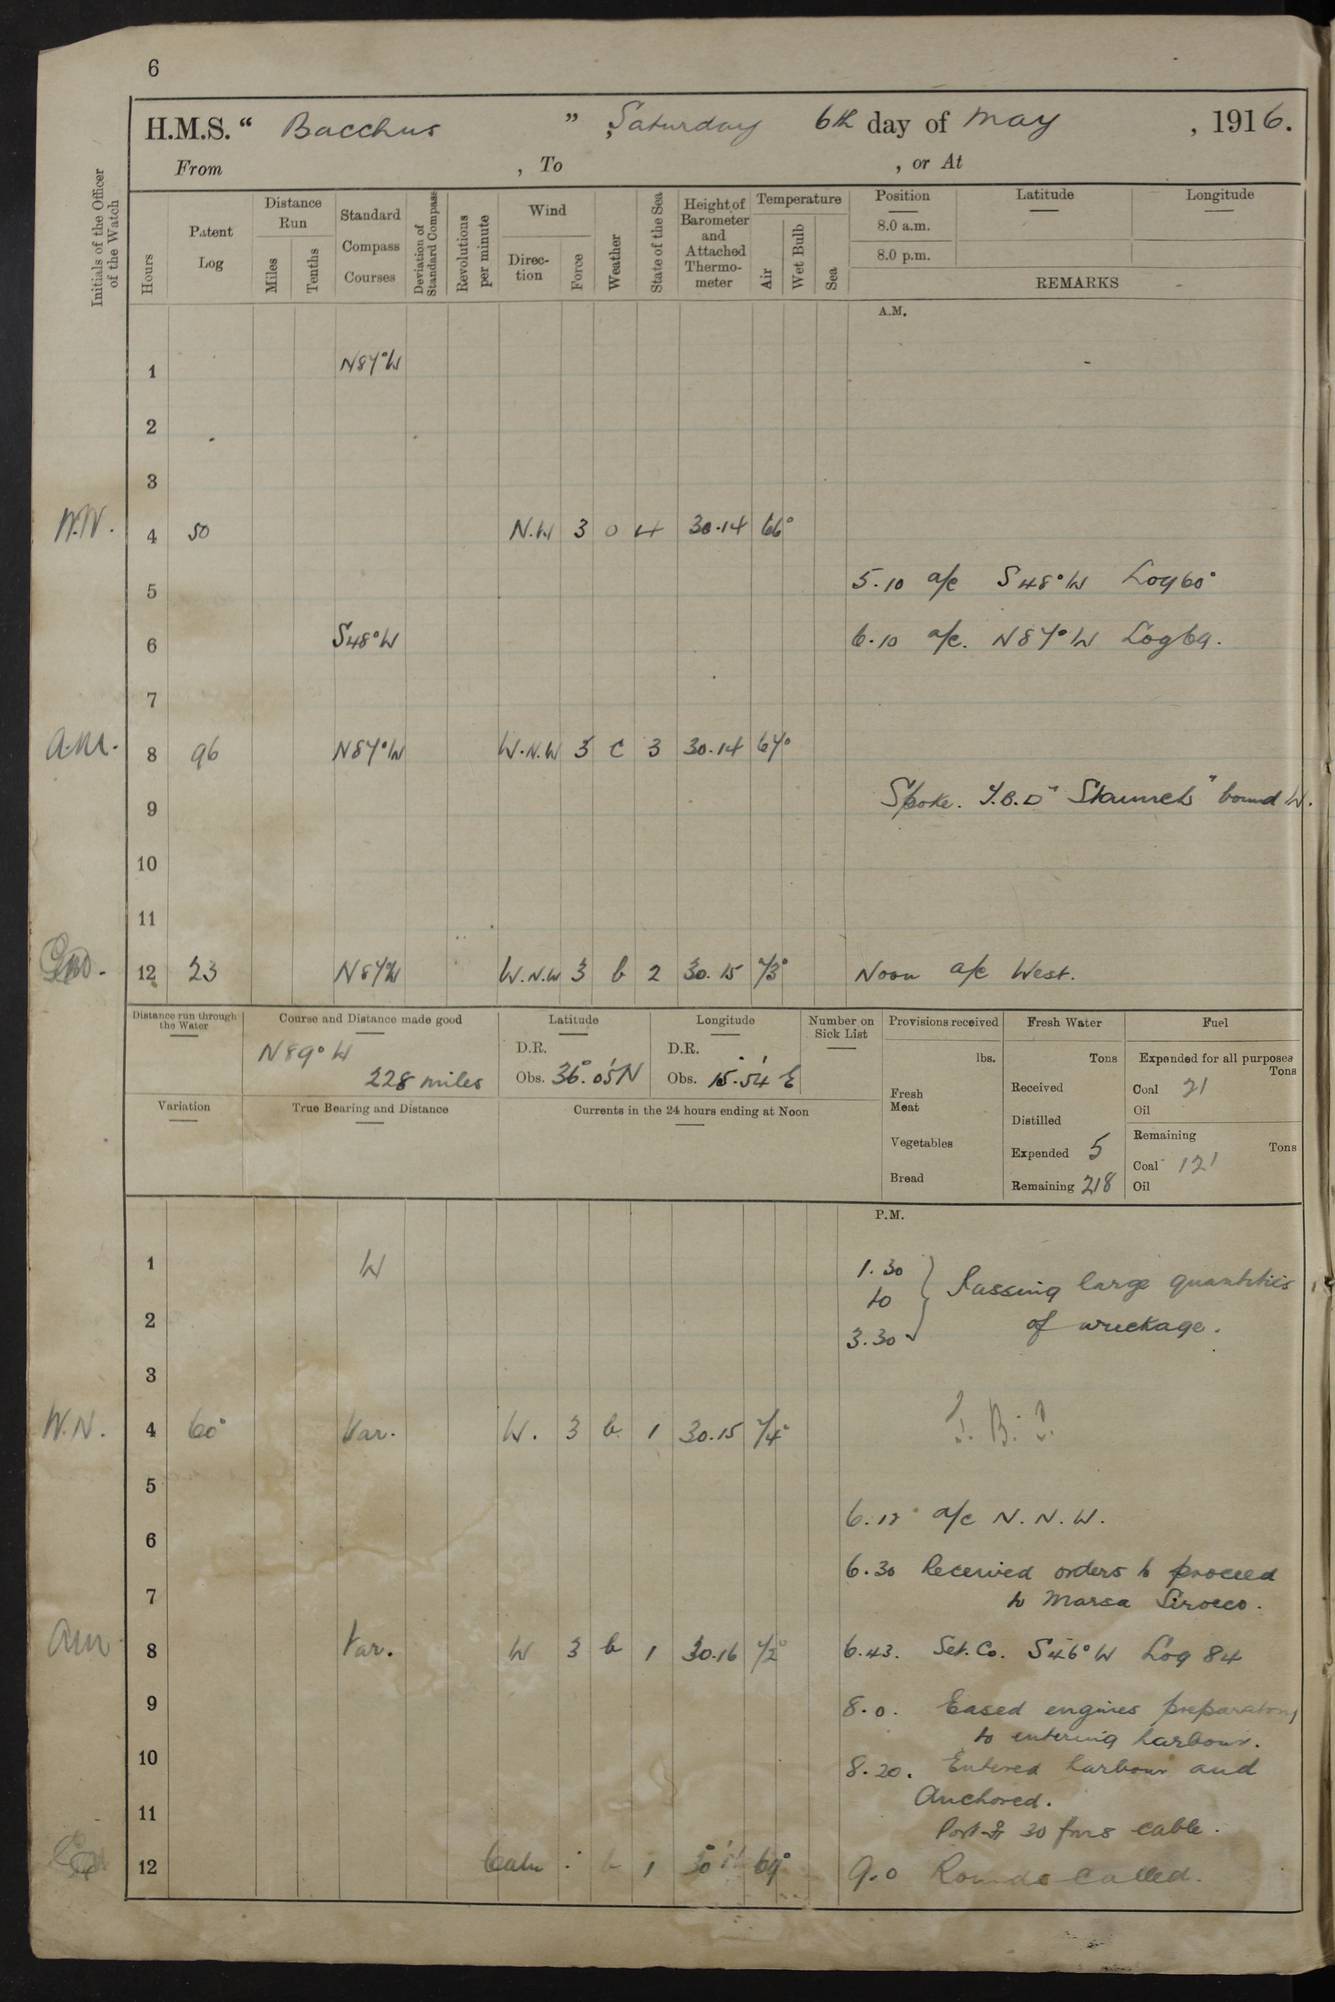 6
H.M.S. " Bacchus " , Saturday 6th day of May , 1916.
From , To , or At
Initials of the Officer of the Watch
Hours
Patent Log
Distance Run
Miles
Tenths
Standard Compass Courses
Deviation of Standard Compass
Revolutions per minute
Wind
Direction
Force
Weather
State of the Sea
Height of Barometer and Attached Thermometer
Temperature
Air
Wet Bulb
Sea
Position Latitude Longitude
8.0 a.m.
8.0 p.m.
REMARKS
A.M.
1 N87°W
2
3
W.N. 4 50 N.W 3 o 4 30.14 66°
5 5.10 a/c S48°W Log 60°
6 S48°W 6.10 a/c. N87°W Log 69.
7
8 96 N87°W W.N.W 3 c 3 30.14 67°
9 Spoke. T.B.D "Staunch" bound W.
10
11
12 23 N87W W.N.W 3 b 2 30.15 73° Noon a/c West.
Distance run through the Water
Course and Distance made good
N89°W
228 miles
Latitude
D.R.
Obs. 36°.05'N
Longitude
D.R.
Obs. 15°.54' E
Number on Sick List
Provisions received
lbs.
Fresh Meat
Vegetables
Bread
Fresh Water
Tons
Received
Distilled
Expended 5
Remaining 218
Fuel
Expended for all purposes
Tons
Coal 21
Oil
Remaining
Tons
Coal 121
Oil
Variation
True Bearing and Distance
Currents in the 24 hours ending at Noon
P.M.
1 W 1.30 to 3.30 } Passing large quantities
2 of wreckage.
3
W.N. 4 60° Var. W. 3 b 1 30.15 74°
5
6.12 a/c N.N.W.
6
6.30 Received orders to proceed
7 to Marsa Sirocco.
8 Var. W 3 b 1 30.16 72° 6.43. Set. Co. S46°W Log 84
9 8.0. Eased engines preparatory
to entering harbour.
10 8.20. Entered harbour and
11 Anchored.
Port 30 fms cable.
12 Calm b 1 69° 9.0 Rounds Called.